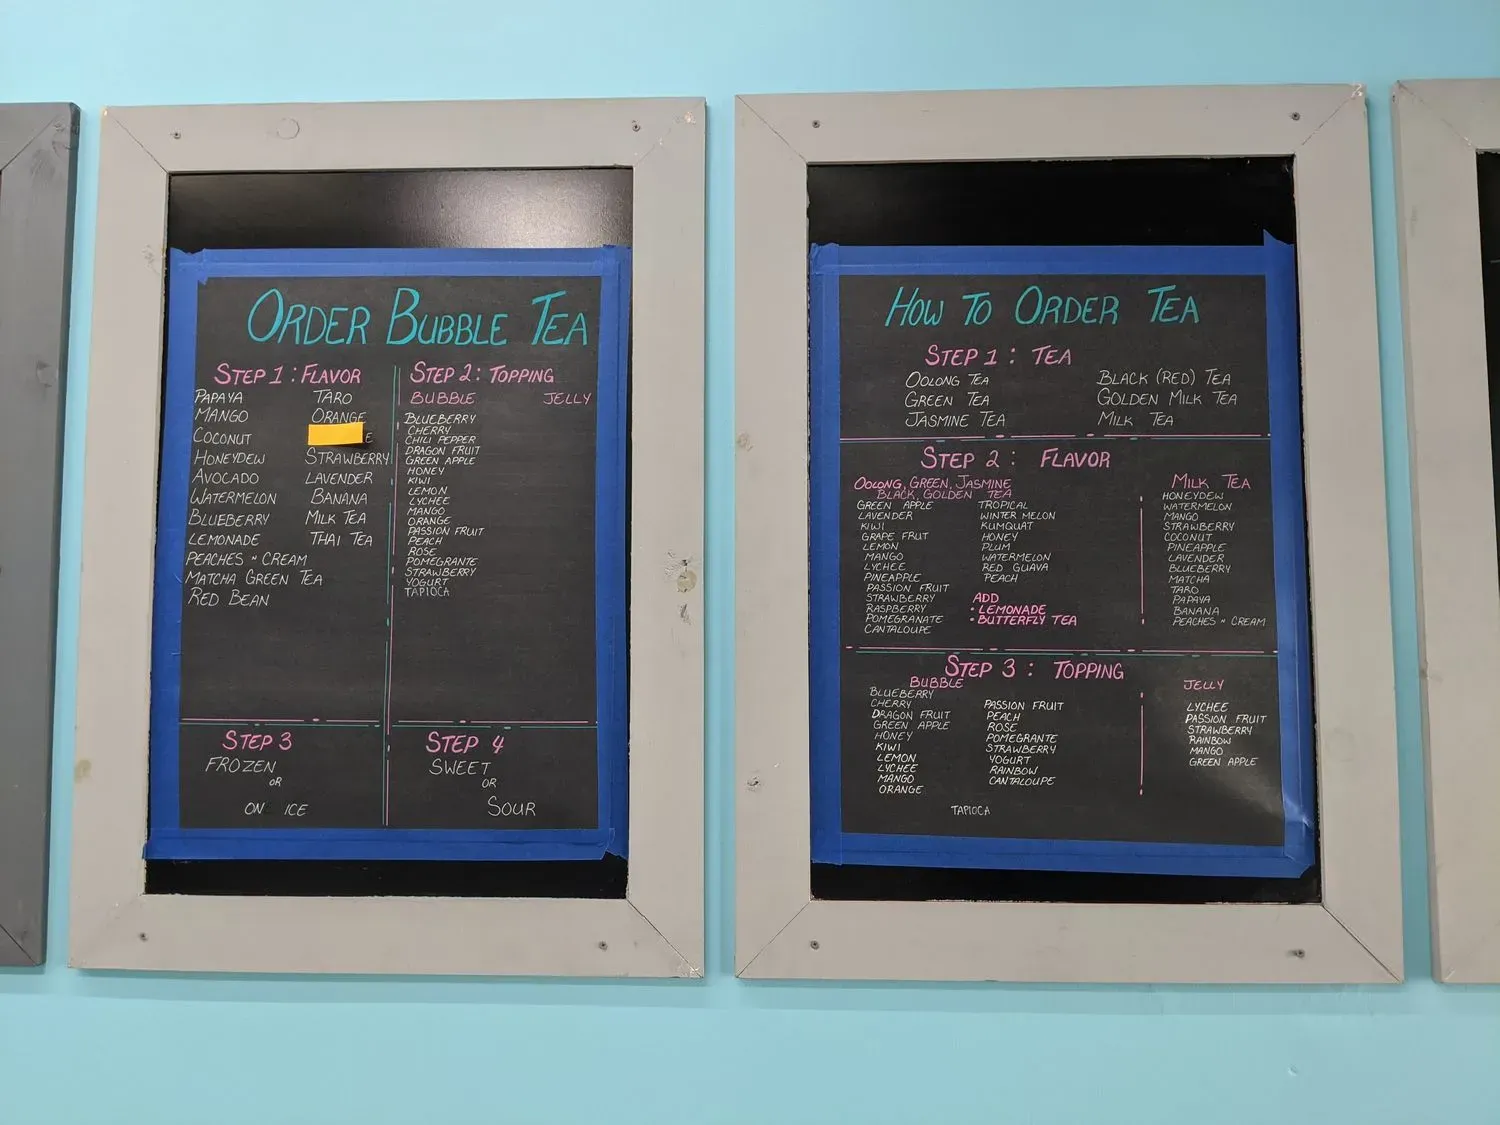 ORDER BUBBLE TEA
STEP 1: FLAVOR
PAPAYA TARO
MANGO ORANGE
COCONUT E
HONEYDEW STRAWBERRY
AVOCADO LAVENDER
WATERMELON BANANA
BLUEBERRY MILK TEA
LEMONADE THAI TEA
PEACHES N CREAM
MATCHA GREEN TEA
RED BEAN
STEP 2: TOPPING
BUBBLE JELLY
BLUEBERRY
CHERRY
CHILI PEPPER
DRAGON FRUIT
GREEN APPLE
HONEY
KIWI
LEMON
LYCHEE
MANGO
ORANGE
PASSION FRUIT
PEACH
ROSE
POMEGRANTE
STRAWBERRY
YOGURT
TAPIOCA
STEP 3
FROZEN
OR
ON ICE
STEP 4
SWEET
OR
SOUR
HOW TO ORDER TEA
STEP 1: TEA
OOLONG TEA BLACK (RED) TEA
GREEN TEA GOLDEN MILK TEA
JASMINE TEA MILK TEA
STEP 2: FLAVOR
OOLONG, GREEN, JASMINE
BLACK, GOLDEN TEA
GREEN APPLE TROPICAL
LAVENDER WINTER MELON
KIWI KUMQUAT
GRAPE FRUIT HONEY
LEMON PLUM
MANGO WATERMELON
LYCHEE RED GUAVA
PINEAPPLE PEACH
PASSION FRUIT
STRAWBERRY ADD
RASPBERRY • LEMONADE
POMEGRANATE • BUTTERFLY TEA
CANTALOUPE
MILK TEA
HONEYDEW
WATERMELON
MANGO
STRAWBERRY
COCONUT
PINEAPPLE
LAVENDER
BLUEBERRY
MATCHA
TARO
PAPAYA
BANANA
PEACHES N CREAM
STEP 3: TOPPING
BUBBLE
BLUEBERRY
CHERRY PASSION FRUIT
DRAGON FRUIT PEACH
GREEN APPLE ROSE
HONEY POMEGRANTE
KIWI STRAWBERRY
LEMON YOGURT
LYCHEE RAINBOW
MANGO CANTALOUPE
ORANGE
TAPIOCA
JELLY
LYCHEE
PASSION FRUIT
STRAWBERRY
RAINBOW
MANGO
GREEN APPLE